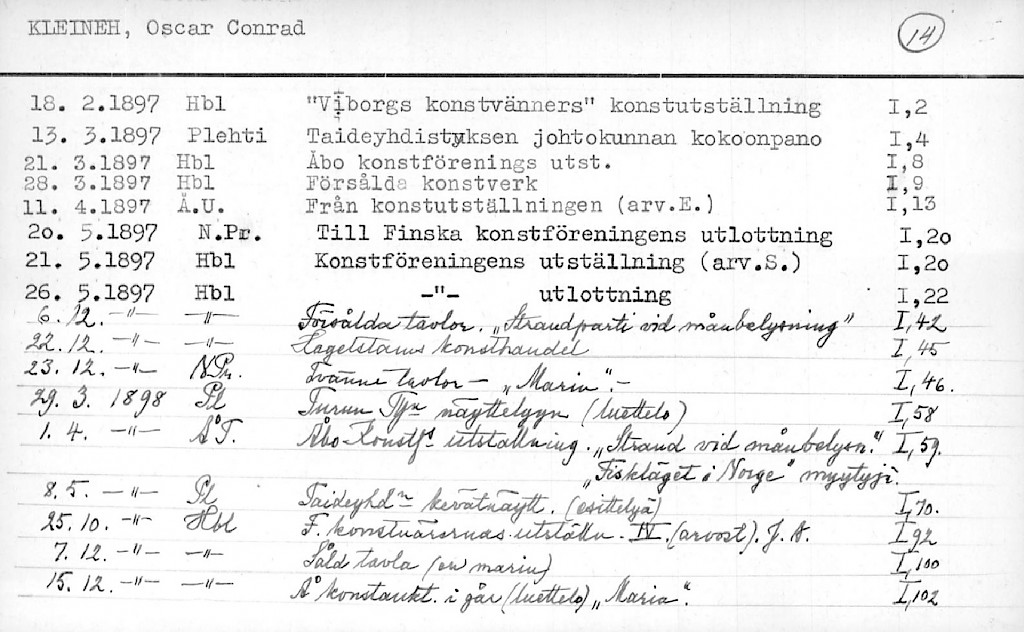 KLEINEH, Oscar Conrad 14
18. 2.1897 Hbl "Viborgs konstvänners" konstutställning I,2
13. 3.1897 Plehti Taideyhdistyksen johtokunnan kokoonpano I,4
21. 3.1897 Hbl Åbo konstförenings utst. I,8
28. 3.1897 Hbl Försålda konstverk I,9
11. 4.1897 Å.U. Från konstutställningen (arv.E.) I,13
20. 5.1897 N.Pr. Till Finska konstföreningens utlottning I,20
21. 5.1897 Hbl Konstföreningens utställning (arv.S.) I,20
26. 5.1897 Hbl -"- utlottning I,22
6. 12. -"- -"- Försålda tavlor. „Strandparti vid månbelysning" I,42
22. 12. -"- -"- Hagelstams konsthandel I,45
23. 12. -"- N.Pr. Tvänne tavlor - „Marin".- I,46.
29. 3. 1898 Pl Turun Tyn näyttelyyn (luettelo) I,58
1. 4. -"- ÅT. Åbo Konstfs utställning. „Strand vid månbelysn." I,59.
„Fiskläget i Norge" myytyji.
8. 5. -"- Pl Taideyhdn kevätnäytt. (esittelyä) I,70.
25. 10. -"- Hbl F. konstnärernas utställn. IV. (arvost). J. A. I,92
7. 12. -"- -"- Såld tavla (en marin) I,100
15. 12. -"- -"- Å konstaukt. i går (luettelo) „Marin". I,102